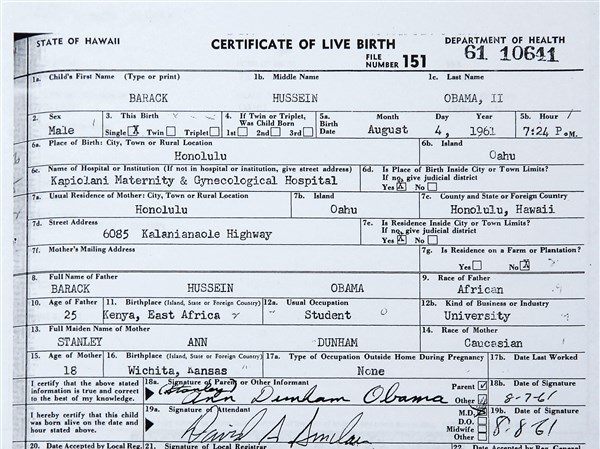 STATE OF HAWAII CERTIFICATE OF LIVE BIRTH DEPARTMENT OF HEALTH
FILE NUMBER 151 61 10641
1a. Child's First Name (Type or print) 1b. Middle Name 1c. Last Name
BARACK HUSSEIN OBAMA, II
2. Sex 3. This Birth 4. If Twin or Triplet, Was Child Born 5a. Birth Date Month Day Year 5b. Hour
Male Single X Twin Triplet 1st 2nd 3rd August 4, 1961 7:24 P.M.
6a. Place of Birth: City, Town or Rural Location 6b. Island
Honolulu Oahu
6c. Name of Hospital or Institution (If not in hospital or institution, give street address) 6d. Is Place of Birth Inside City or Town Limits? If no, give judicial district
Kapiolani Maternity & Gynecological Hospital Yes X No
7a. Usual Residence of Mother: City, Town or Rural Location 7b. Island 7c. County and State or Foreign Country
Honolulu Oahu Honolulu, Hawaii
7d. Street Address 7e. Is Residence Inside City or Town Limits? If no, give judicial district
6085 Kalanianaole Highway Yes X No
7f. Mother's Mailing Address 7g. Is Residence on a Farm or Plantation?
Yes No X
8. Full Name of Father 9. Race of Father
BARACK HUSSEIN OBAMA African
10. Age of Father 11. Birthplace (Island, State or Foreign Country) 12a. Usual Occupation 12b. Kind of Business or Industry
25 Kenya, East Africa Student University
13. Full Maiden Name of Mother 14. Race of Mother
STANLEY ANN DUNHAM Caucasian
15. Age of Mother 16. Birthplace (Island, State or Foreign Country) 17a. Type of Occupation Outside Home During Pregnancy 17b. Date Last Worked
18 Wichita, Kansas None
I certify that the above stated information is true and correct to the best of my knowledge. 18a. Signature of Parent or Other Informant Parent Other 18b. Date of Signature
(Stanley) Ann Dunham Obama 8-7-61
I hereby certify that this child was born alive on the date and hour stated above. 19a. Signature of Attendant M.D. D.O. Midwife Other 19b. Date of Signature
David A Sinclair 8-8-61
20. Date Accepted by Local Reg. 21. Signature of Local Registrar 22. Date Accepted by Reg. General